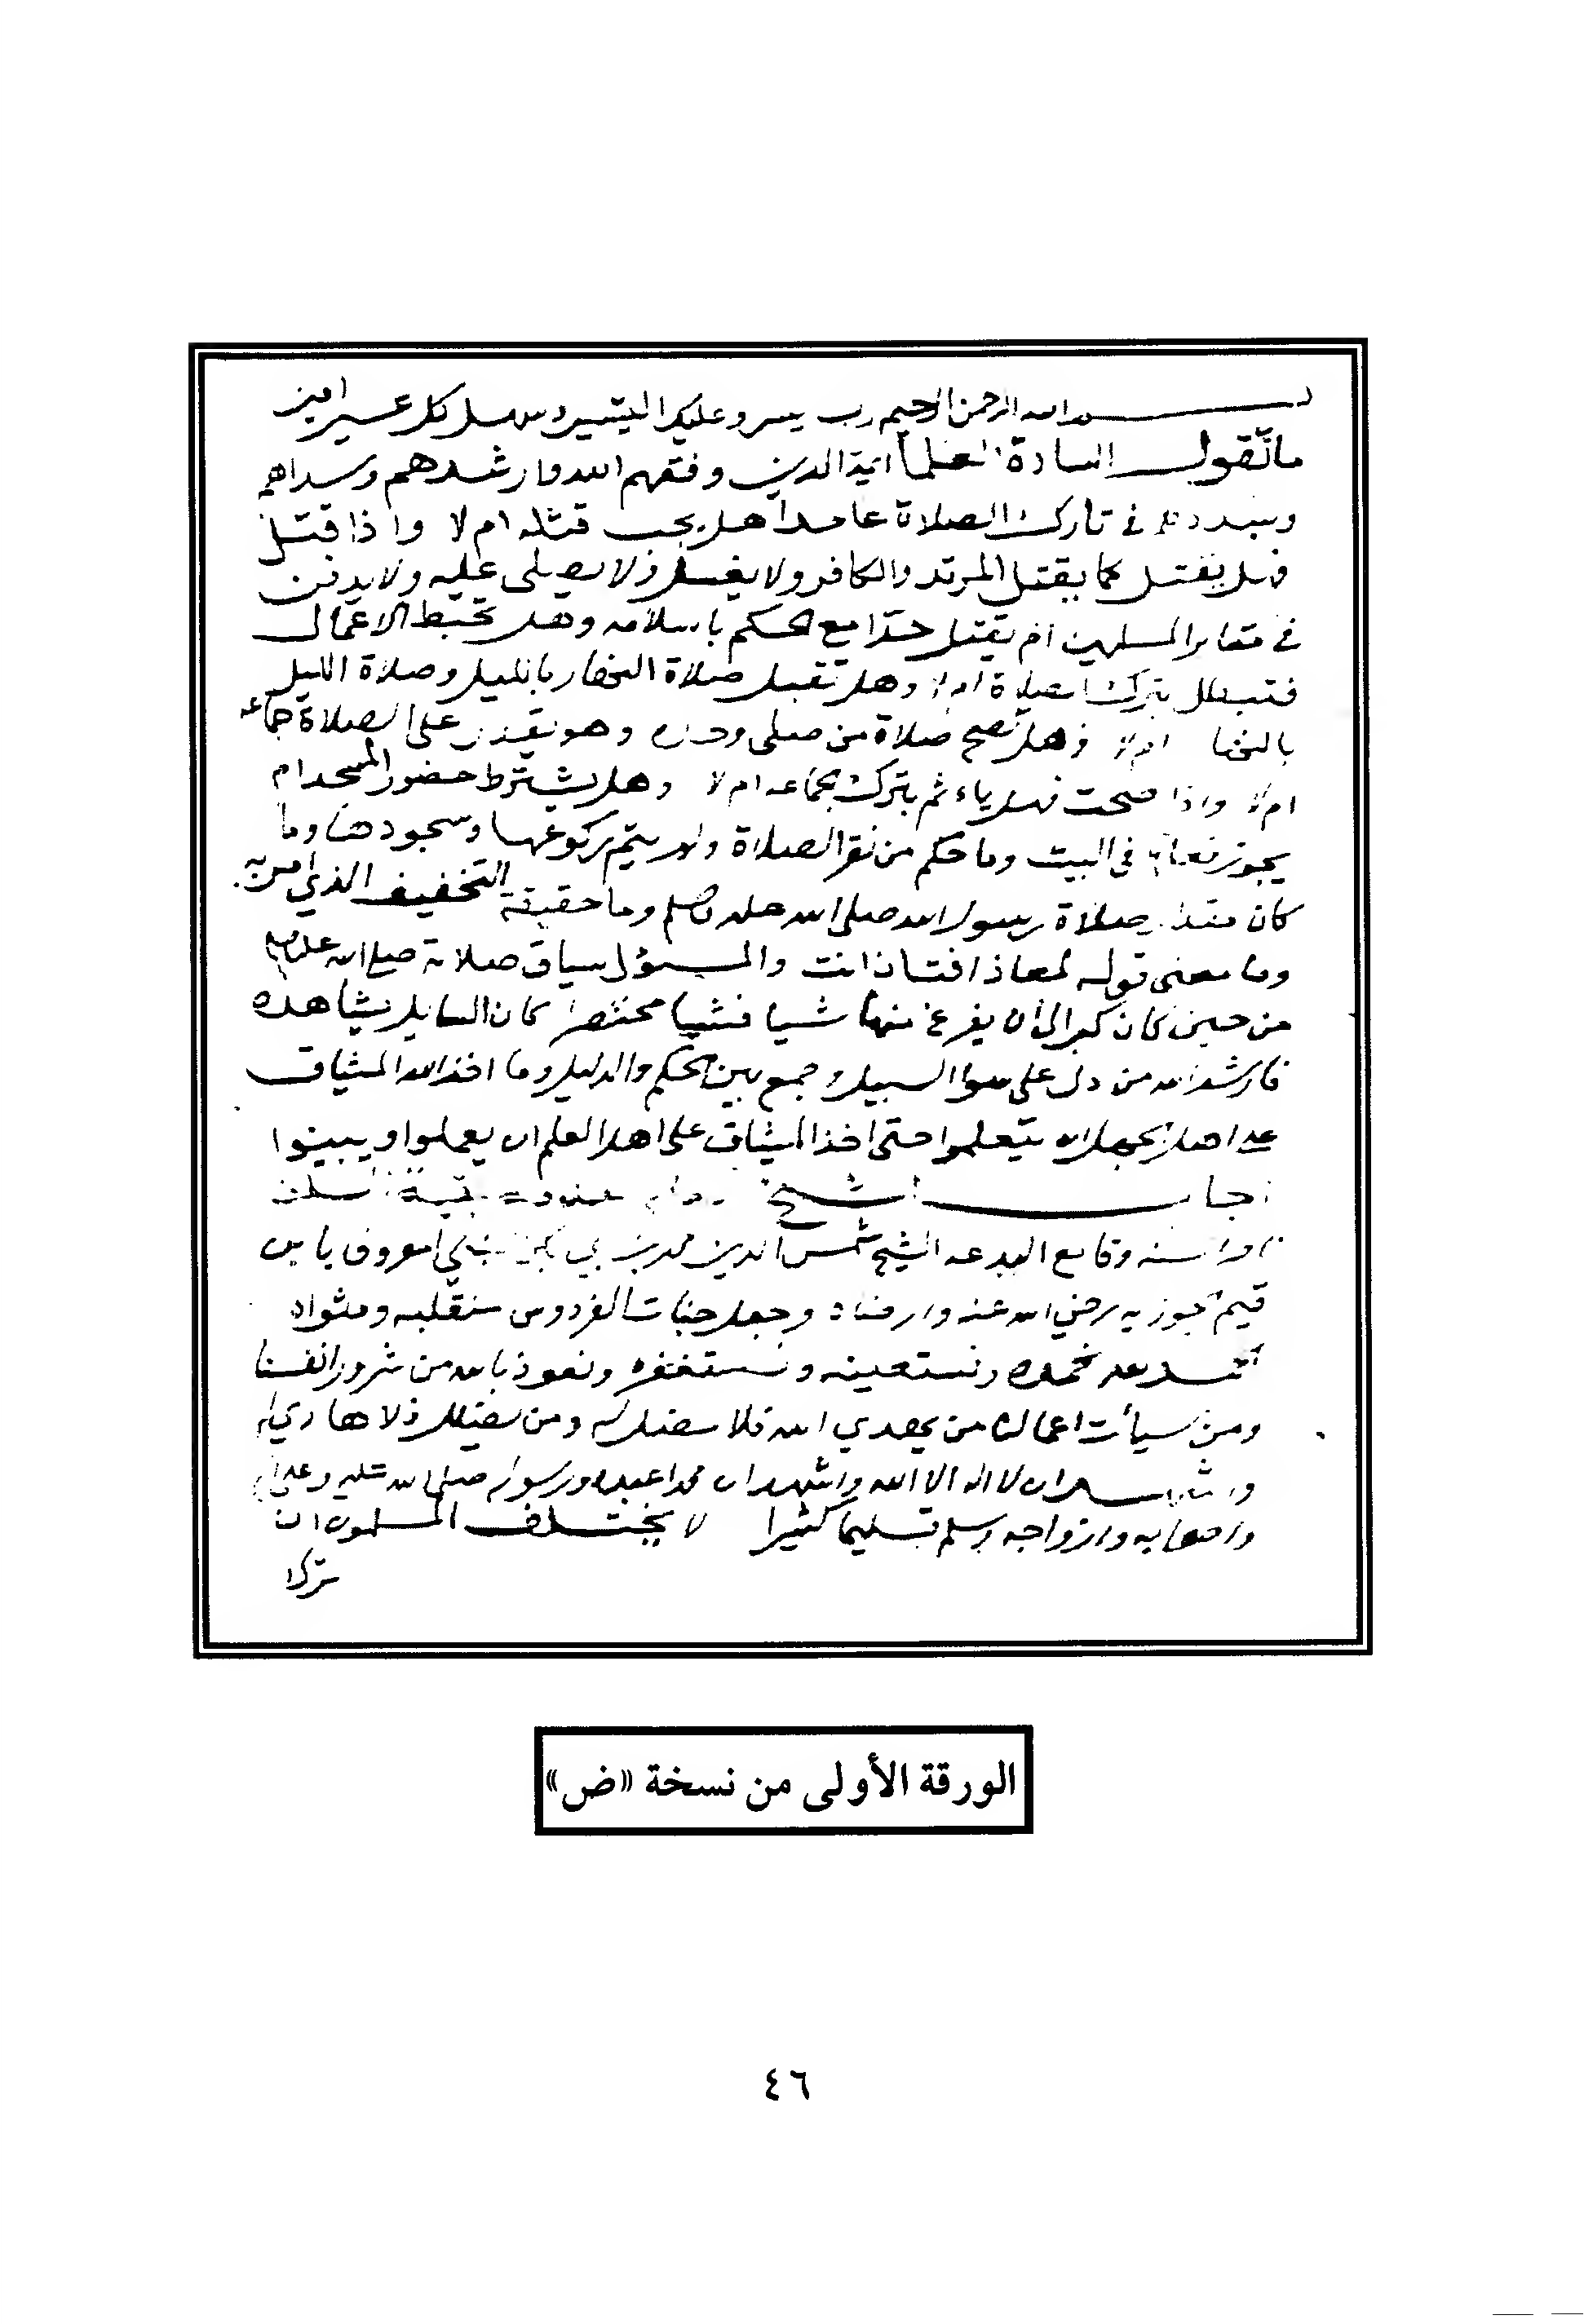 بسم الله الرحمن الرحيم رب يسر وعليك التيسير وسهل كل عسير امين
ما تقول السادة العلما ايمة الدين وفقهم الله وارشدهم وسداهم
في تارك الصلاة عامدا هل يجب قتله ام لا واذا قتل
فهل يقتل كما يقتل المرتد والكافر ولا يغسل ولا يصلى عليه ولا يدفن
في مقابر المسلمين ام يقتل حدا مع الحكم باسلامه وهل تحبط الاعمال
فتبطل بترك الصلاة ام لا وهل تقبل صلاة النهار بالليل وصلاة الليل
بالنهار ام لا وهل تصح صلاة من صلى وحده وهو يقدر على الصلاة جماعه
ام لا واذا صحت فهل ياءثم بترك الجماعه ام لا وهل يشترط حضور المسجد ام
يجوز فعلها في البيت وما حكم من نقر الصلاة ولم يتم ركوعها وسجودها وما
كان مقدار صلاة رسول الله صلى الله عليه وسلم وما حقيقة التخفيف الذي امر به
وما معنى قوله لمعاذ افتان انت والمسؤل سياق صلاته صلى الله عليه وسلم
من حين كان كبر الى ان يفرغ منها شيا فشيا مختصرا كان السايل يشاهده
فارشد الله من دل على سوا السبيل وجمع بين الحكم والدليل وما اخذ الله الميثاق
على اهل الجهل ان يتعلموا حتى اخذ الميثاق على اهل العلم ان يعملوا ويبينوا
اجاب الشيخ بقية السلف
السنه وقامع البدعه الشيخ شمس الدين محمد بن ابي بكر الحنبلي المعروف بابن
قيم الجوزيه رضي الله عنه وارضاه وجعل جنات الفردوس منقلبه ومثواه
الحمد لله نحمده ونستعينه ونستغفره ونعوذ بالله من شرور انفسنا
ومن سيأت اعمالنا من يهدي الله فلا مضل له ومن يضلل فلا هادي له
واشهد ان لا اله الا الله واشهد ان محمدا عبده ورسوله صلى الله عليه وعلى اله
واصحابه وازواجه وسلم تسليما كثيرا لا يختلف المسلمون ان
ترك
الورقة الأولى من نسخة «ض»
٤٦